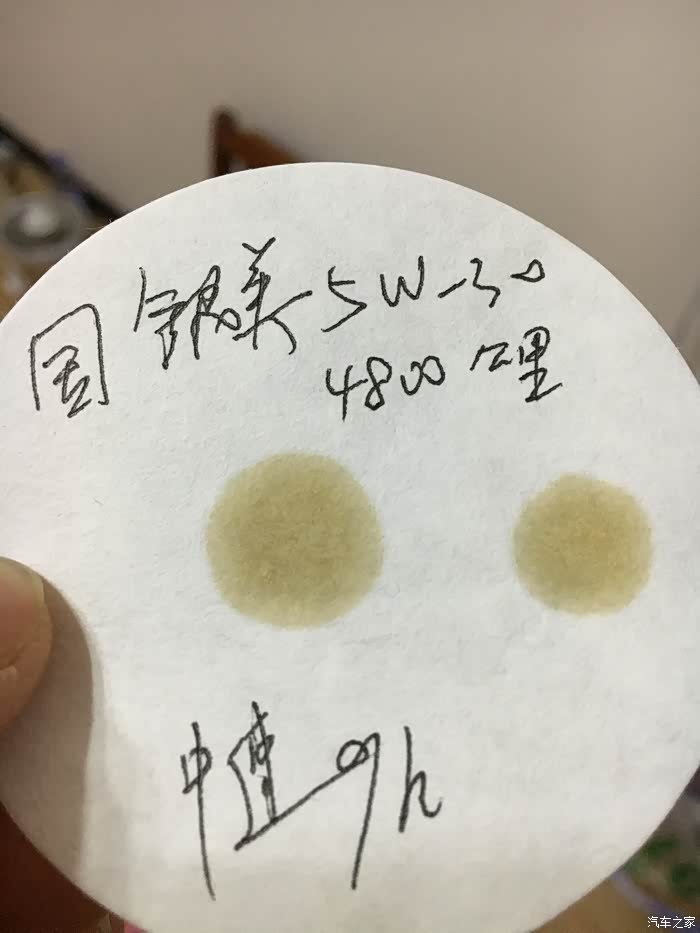 国银美5W-30
4800公里
中速9h
汽车之家